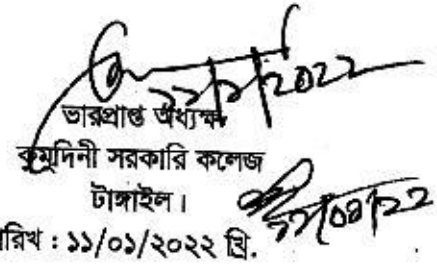 ১১/১/২০২২
ভারপ্রাপ্ত অধ্যক্ষ
কুমুদিনী সরকারি কলেজ
টাঙ্গাইল।
রিখ : ১১/০১/২০২২ খ্রি.